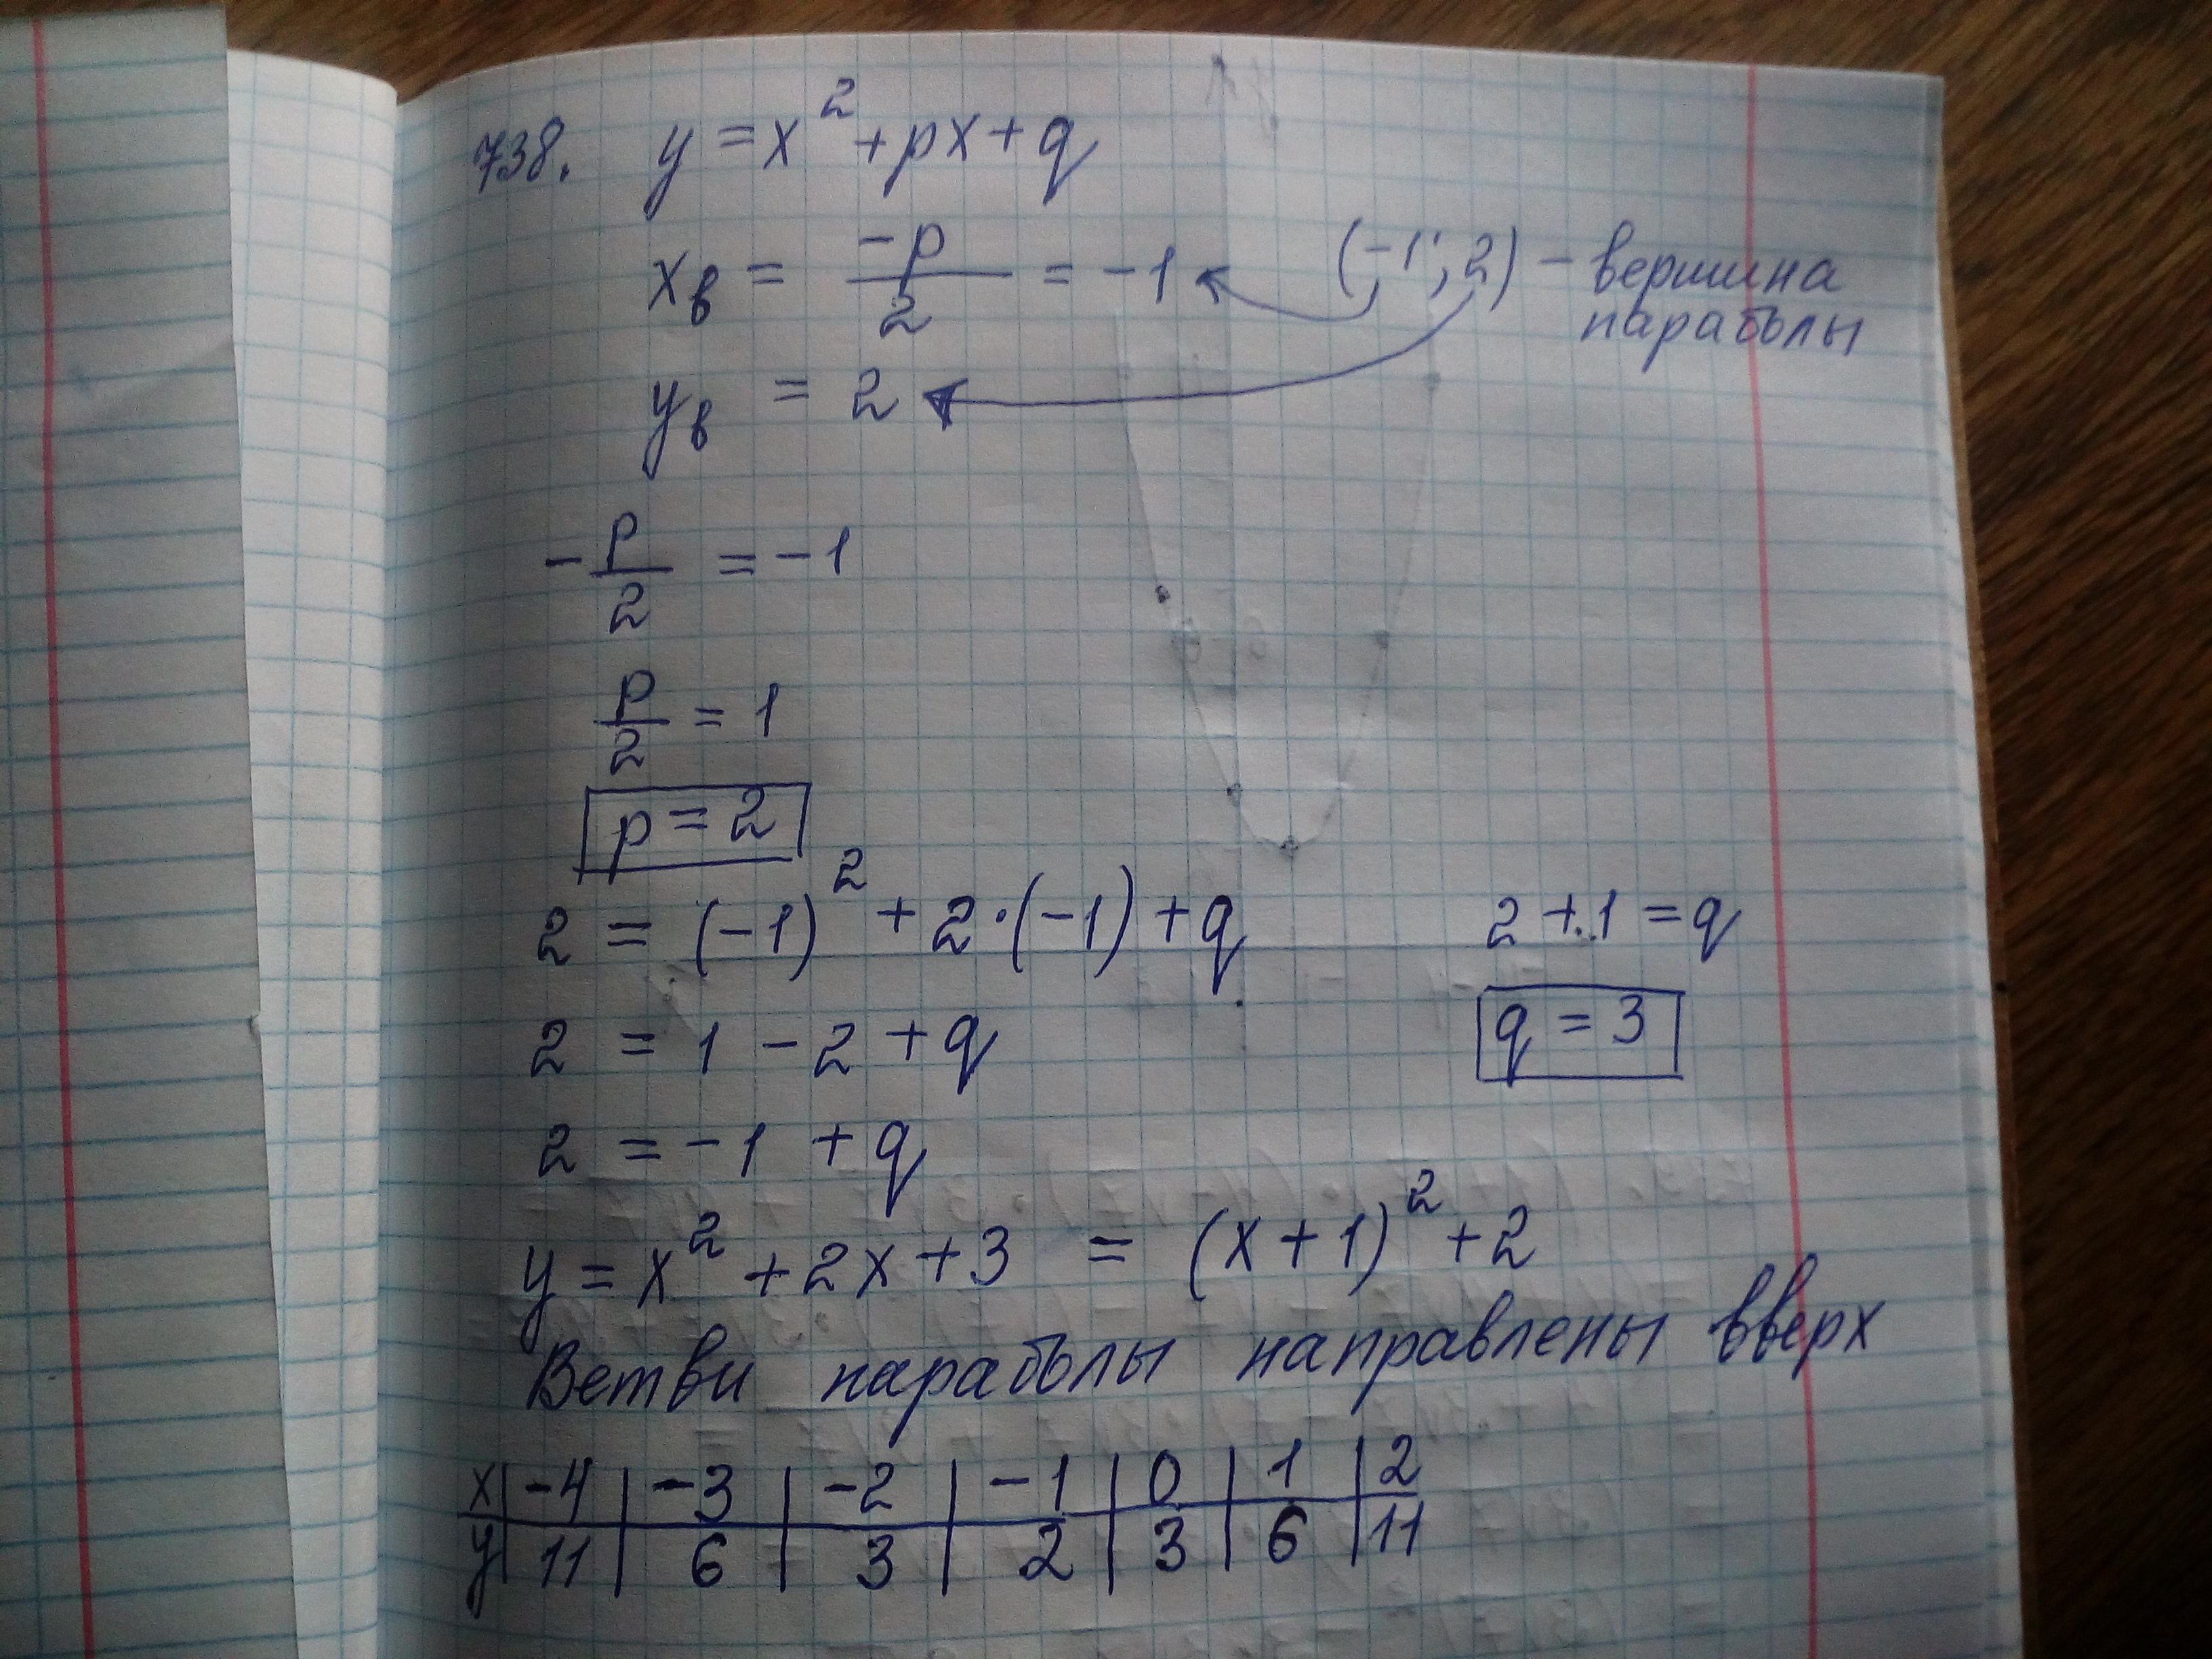 738. y = x² + px + q
xв = -p/2 = -1 (-1; 2) - вершина
параболы
yв = 2
-p/2 = -1
p/2 = 1
p = 2
2 = (-1)² + 2·(-1) + q 2 + 1 = q
2 = 1 - 2 + q q = 3
2 = -1 + q
y = x² + 2x + 3 = (x + 1)² + 2
Ветви параболы направлены вверх
x | -4 | -3 | -2 | -1 | 0 | 1 | 2
y | 11 | 6 | 3 | 2 | 3 | 6 | 11